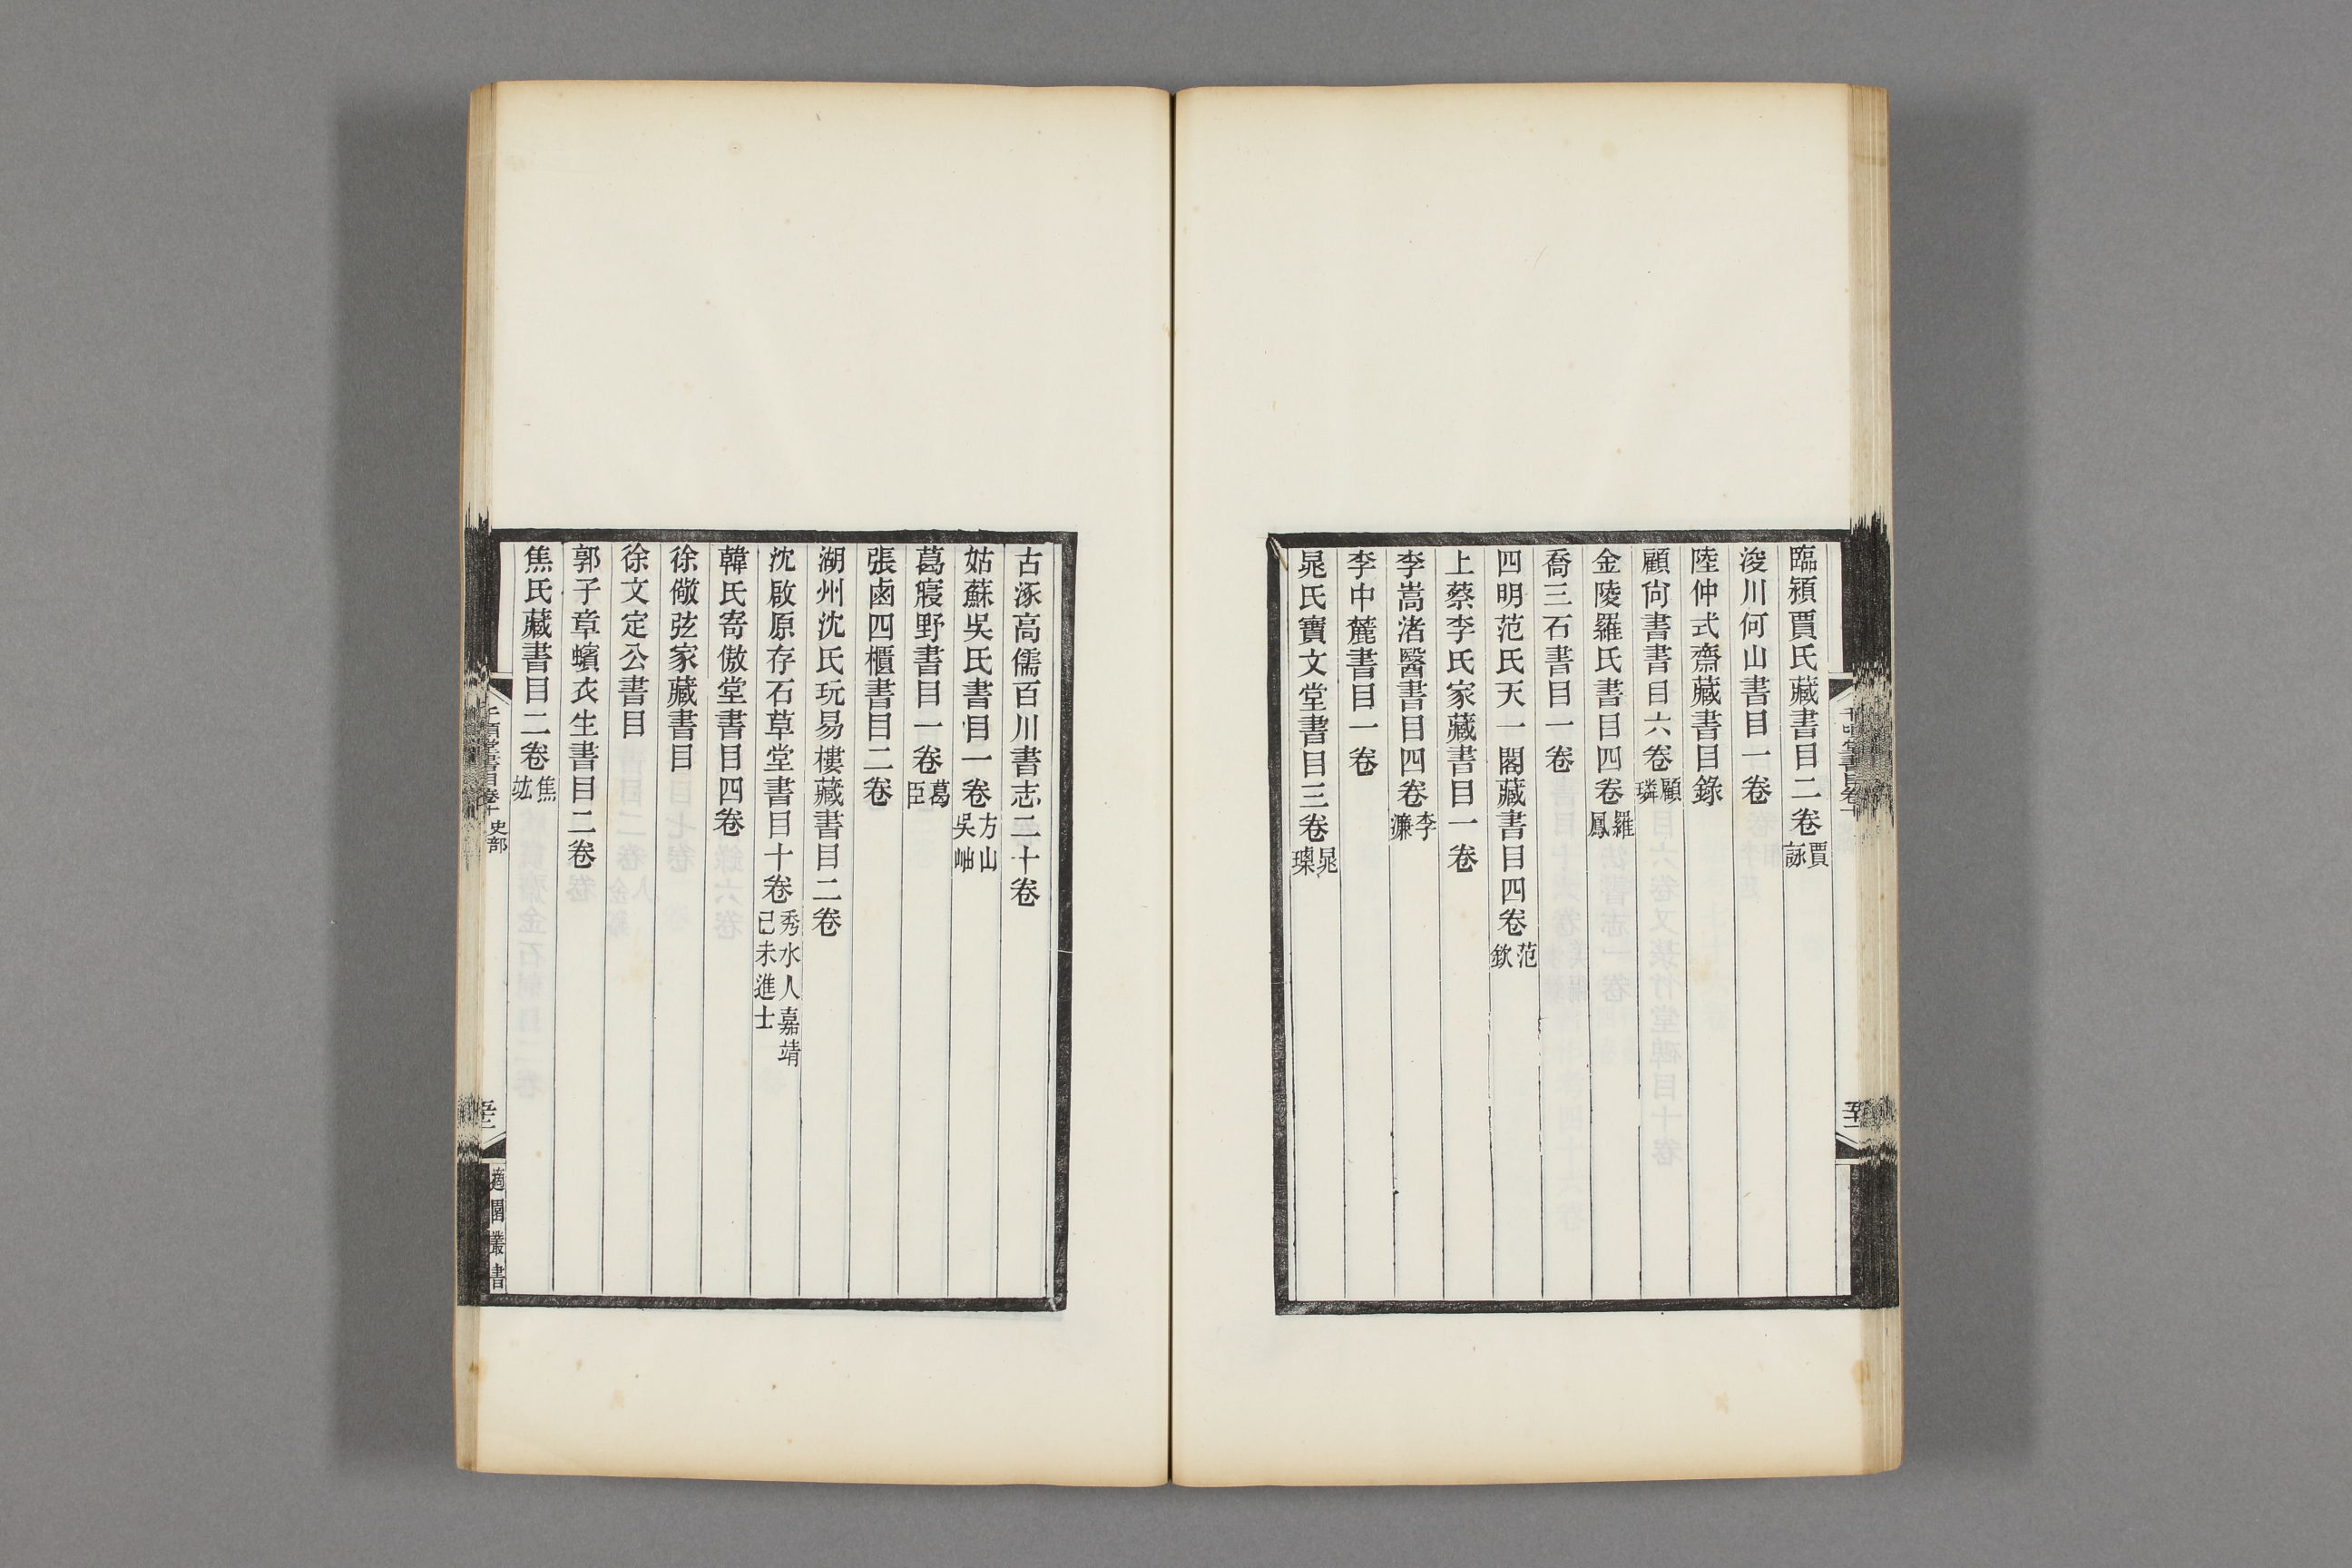 臨潁賈氏藏書目二卷賈詠
浚川何山書目一卷
陸仲式齋藏書目錄
顧尙書書目六卷顧璘
金陵羅氏書目四卷羅鳳
喬三石書目一卷
四明范氏天一閣藏書目四卷范欽
上蔡李氏家藏書目一卷
李嵩渚醫書目四卷李濂
李中麓書目一卷
晁氏寶文堂書目三卷晁瑮
古涿高儒百川書志二十卷
姑蘇吳氏書目一卷方山吳岫
葛寢野書目一卷葛臣
張鹵四櫃書目二卷
湖州沈氏玩易樓藏書目二卷
沈啟原存石草堂書目十卷秀水人嘉靖己未進士
韓氏寄傲堂書目四卷
徐儆弦家藏書目
徐文定公書目
郭子章蠙衣生書目二卷
焦氏藏書目二卷焦竑
千頃堂書目卷十 史部
適園叢書